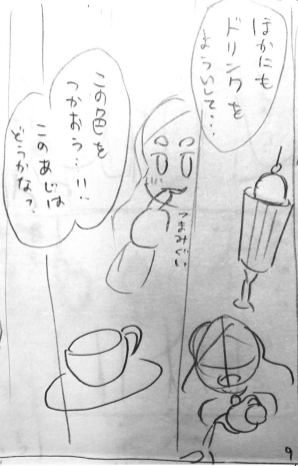 ほかにも
ドリンクを
おついして…
つまみぐい
この色を
つかおう…!!
このあじは
どうかなっ
9